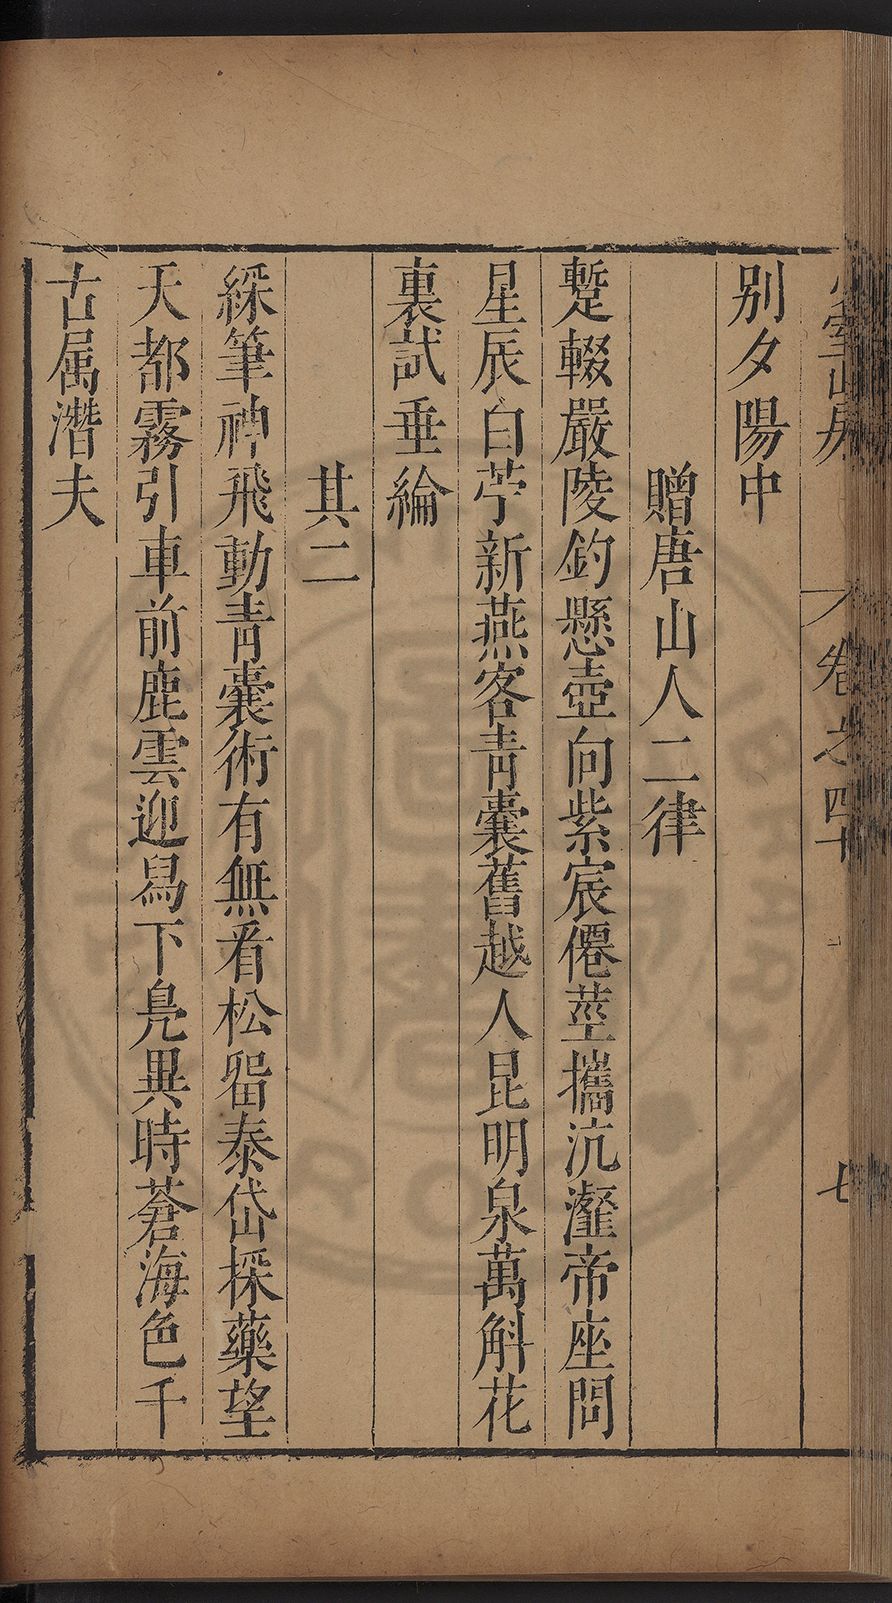 少室山房　卷之四十　七
別夕陽中
贈唐山人二律
蹔輟嚴陵釣懸壺向紫宸僊莖攜沆瀣帝座問
星辰白苧新燕客青囊舊越人昆明泉萬斛花
裏試垂綸
其二
綵筆神飛動青囊術有無看松留泰岱採藥望
天都霧引車前鹿雲迎舄下鳧異時蒼海色千
古属潛夫